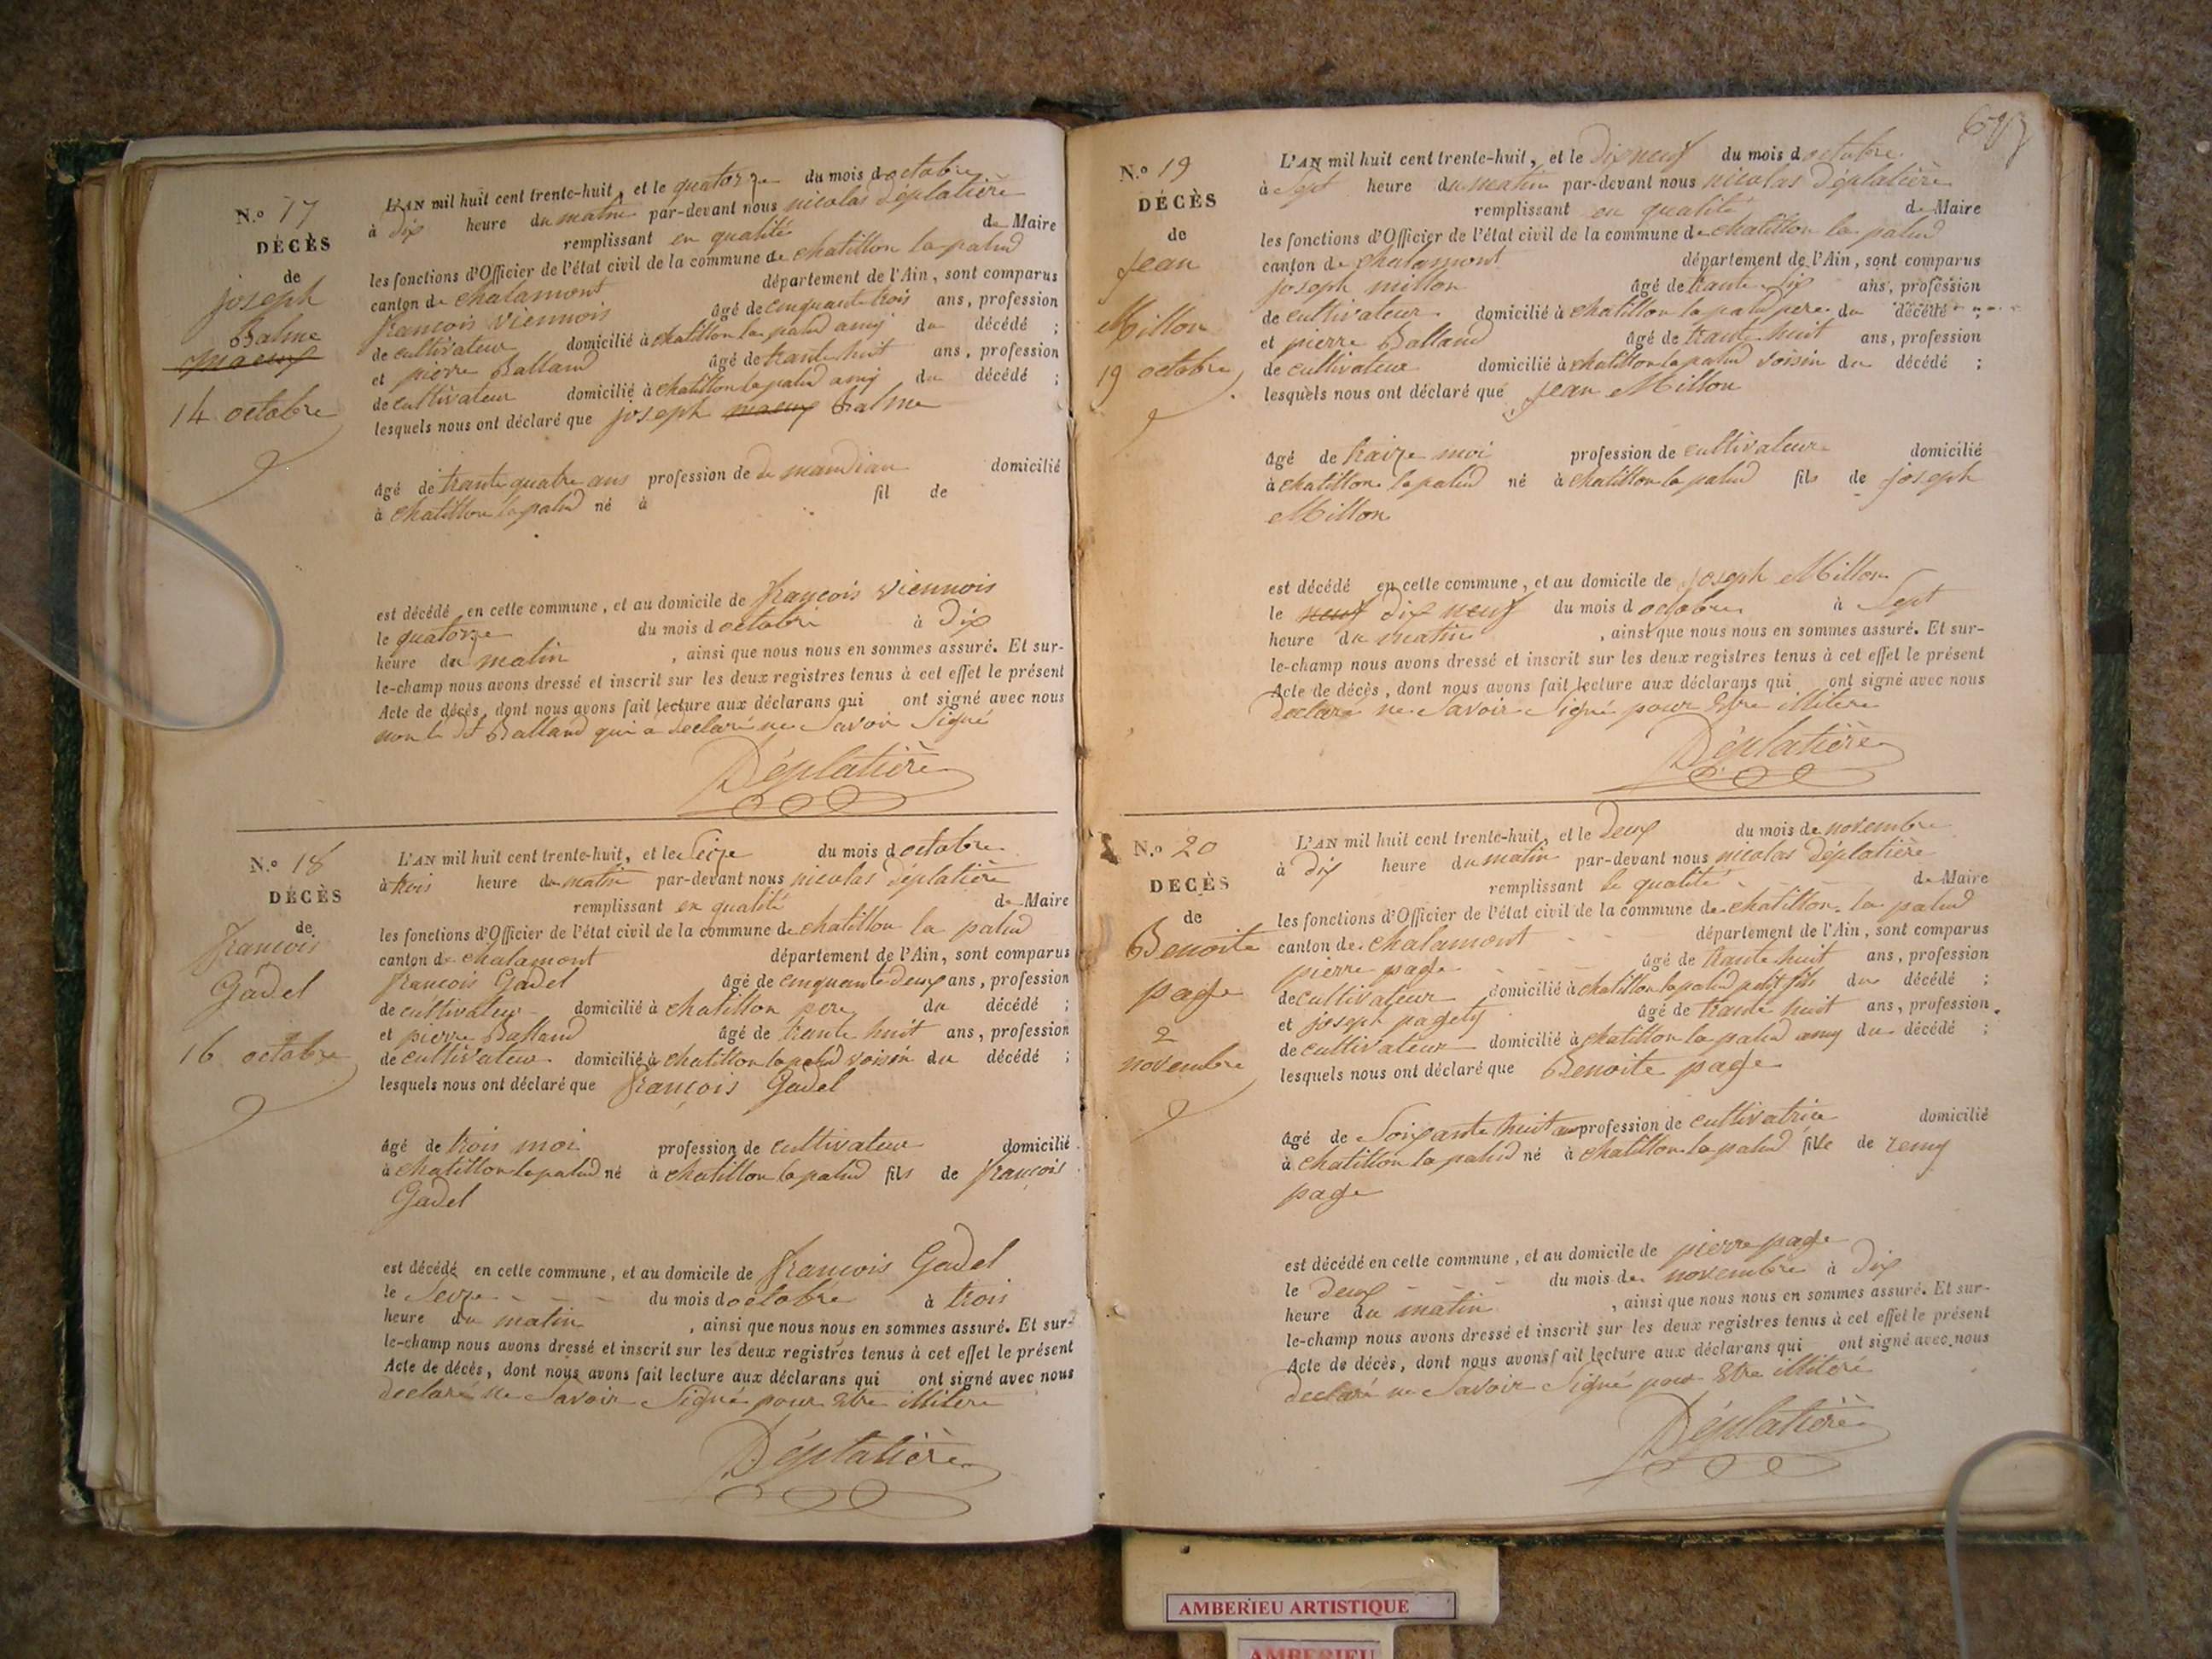 N.o 17
DÉCÈS
de
joseph
Balme
14 octobre
L'AN mil huit cent trente-huit, et le quatorze du mois d octobre
à dix heure du matin par-devant nous nicolas Déplatière
remplissant en qualité de Maire
les fonctions d'Officier de l'état civil de la commune de chatillon la palud
canton de chalamont département de l'Ain, sont comparus
françois Viennois âgé de cinquante trois ans, profession
de cultivateur domicilié à chatillon la palud amij du décédé ;
et pierre Balland âgé de trante huit ans, profession
de cultivateur domicilié à chatillon la palud amij du décédé ;
lesquels nous ont déclaré que joseph Balme
âgé de trante quatre ans profession de de mandian domicilié
à chatillon la palud né à fil de
est décédé en cette commune, et au domicile de françois Viennois
le quatorze du mois d octobre à Dix
heure du matin , ainsi que nous nous en sommes assuré. Et sur-
le-champ nous avons dressé et inscrit sur les deux registres tenus à cet effet le présent
Acte de décès, dont nous avons fait lecture aux déclarans qui ont signé avec nous
non le dt Balland qui a declaré ne Savoir Signé
Déplatière
N.o 18
DÉCÈS
de
francois
Gadel
16 octobre
L'AN mil huit cent trente-huit, et le Seize du mois d octobre
à trois heure du matin par-devant nous nicolas Déplatière
remplissant en qualité de Maire
les fonctions d'Officier de l'état civil de la commune de chatillon la palud
canton de chalamont département de l'Ain, sont comparus
francois Gadel âgé de cinquante deux ans, profession
de cultivateur domicilié à chatillon pere du décédé ;
et pierre Balland âgé de trante huit ans, profession
de cultivateur domicilié à chatillon la palud voisin du décédé ;
lesquels nous ont déclaré que françois Gadel
âgé de trois moi profession de cultivateur domicilié
à chatillon la palud né à chatillon la palud fils de françois
Gadel
est décédé en cette commune, et au domicile de francois Gadel
le Seize du mois d octobre à trois
heure du matin , ainsi que nous nous en sommes assuré. Et sur-
le-champ nous avons dressé et inscrit sur les deux registres tenus à cet effet le présent
Acte de décès, dont nous avons fait lecture aux déclarans qui ont signé avec nous
declaré ne Savoir Signé pour Etre illitere
Déplatière
N.o 19
DÉCÈS
de
Jean
Millon
19 octobre
L'AN mil huit cent trente-huit, et le Dix neuf du mois d octobre
à Sept heure du matin par-devant nous nicolas Déplatière
remplissant en qualité de Maire
les fonctions d'Officier de l'état civil de la commune de chatillon la palud
canton de chalamont département de l'Ain, sont comparus
joseph millon âgé de trante Six ans, profession
de cultivateur domicilié à chatillon la palud pere du décédé ;
et pierre Balland âgé de trante huit ans, profession
de cultivateur domicilié à chatillon la palud voisin du décédé ;
lesquels nous ont déclaré que Jean Millon
âgé de traize moi profession de cultivateur domicilié
à chatillon la palud né à chatillon la palud fils de joseph
Millon
est décédé en cette commune, et au domicile de joseph Millon
le neuf Dix neuf du mois d octobre à Sept
heure du matin , ainsi que nous nous en sommes assuré. Et sur-
le-champ nous avons dressé et inscrit sur les deux registres tenus à cet effet le présent
Acte de décès, dont nous avons fait lecture aux déclarans qui ont signé avec nous
declaré ne Savoir Signé pour Etre illitere
Déplatière
N.o 20
DÉCÈS
de
Benoite
page
2
novembre
L'AN mil huit cent trente-huit, et le Deux du mois de novembre
à dix heure du matin par-devant nous nicolas Déplatière
remplissant la qualité de Maire
les fonctions d'Officier de l'état civil de la commune de chatillon la palud
canton de chalamont département de l'Ain, sont comparus
pierre page âgé de trante huit ans, profession
de cultivateur domicilié à chatillon la palud petit fils du décédé ;
et joseph âgé de trante huit ans, profession
de cultivateur domicilié à chatillon la palud amy du décédé ;
lesquels nous ont déclaré que Benoite page
âgé de Soixante huit an profession de cultivatrice domicilié
à chatillon la palud né à chatillon la palud fille de remy
page
est décédé en cette commune, et au domicile de pierre page
le deux du mois de novembre à Dix
heure du matin , ainsi que nous nous en sommes assuré. Et sur-
le-champ nous avons dressé et inscrit sur les deux registres tenus à cet effet le présent
Acte de décès, dont nous avons fait lecture aux déclarans qui ont signé avec nous
declaré ne Savoir Signé pour Etre illitere
Déplatière
AMBERIEU ARTISTIQUE
AMBERIEU